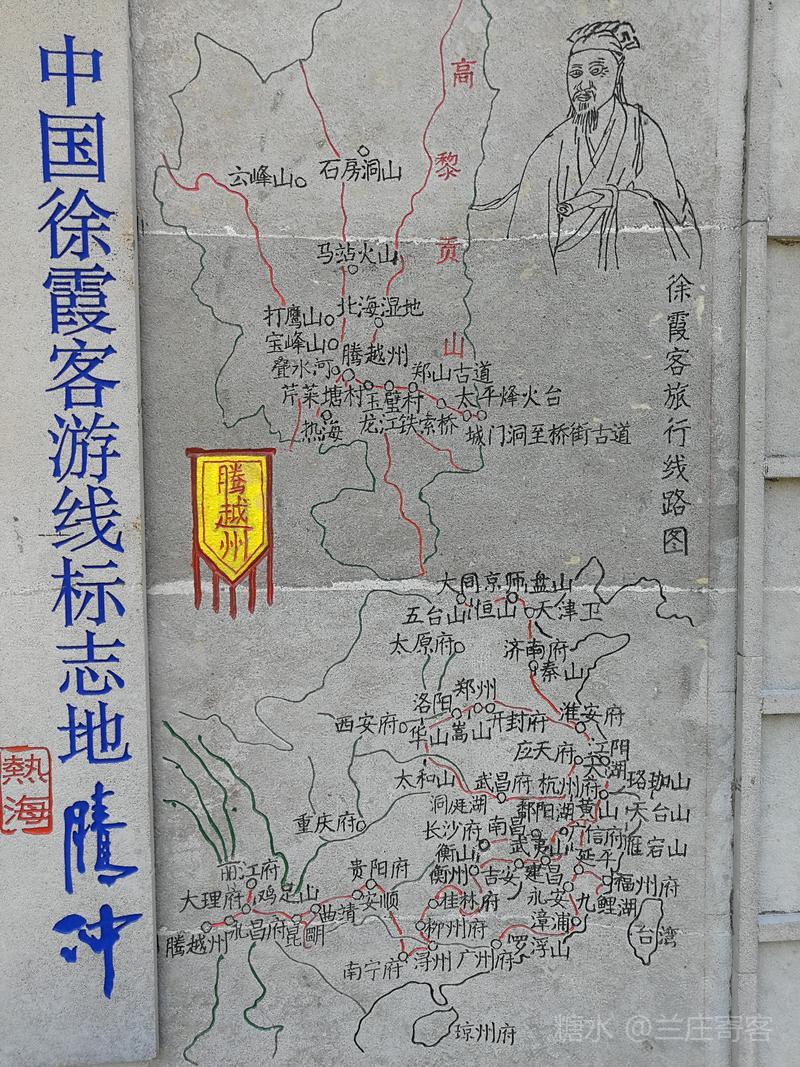 中国徐霞客游线标志地
腾冲
熱海
高黎贡山
云峰山
石房洞山
马站火山
北海湿地
打鹰山
宝峰山
叠水河
腾越州
郑山古道
芹菜塘村
玉璧村
太平烽火台
热海
龙江铁索桥
城门洞至桥街古道
腾越州
徐霞客旅行线路图
大同
京师
盘山
五台山
恒山
天津卫
太原府
济南府
秦山
洛阳
郑州
西安府
华山
嵩山
开封府
淮安府
应天府
江阴
太湖
太和山
武昌府
杭州府
珞珈山
洞庭湖
鄱阳湖
黄山
天台山
重庆府
长沙府
南昌
广信府
武夷山
雁宕山
衡山
延平
衡州
吉安
建昌
福州府
丽江府
贵阳府
大理府
鸡足山
安顺
桂林府
永安
九鲤湖
曲靖
漳浦
腾越州
永昌府
昆明
柳州府
台湾
南宁府
浔州
广州府
罗浮山
琼州府
糖水 @兰庄寄客